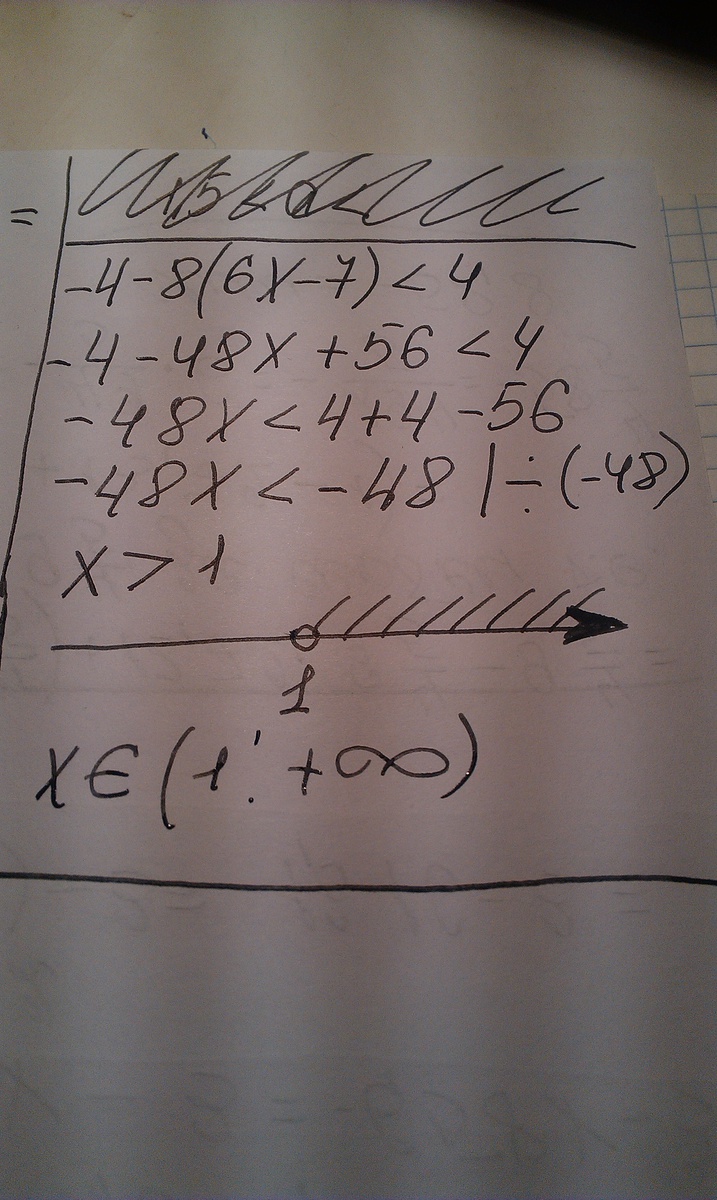 =
-4-8(6x-7)<4
-4-48x+56<4
-48x<4+4-56
-48x<-48 |÷(-48)
x>1
1
x∈(1; +∞)